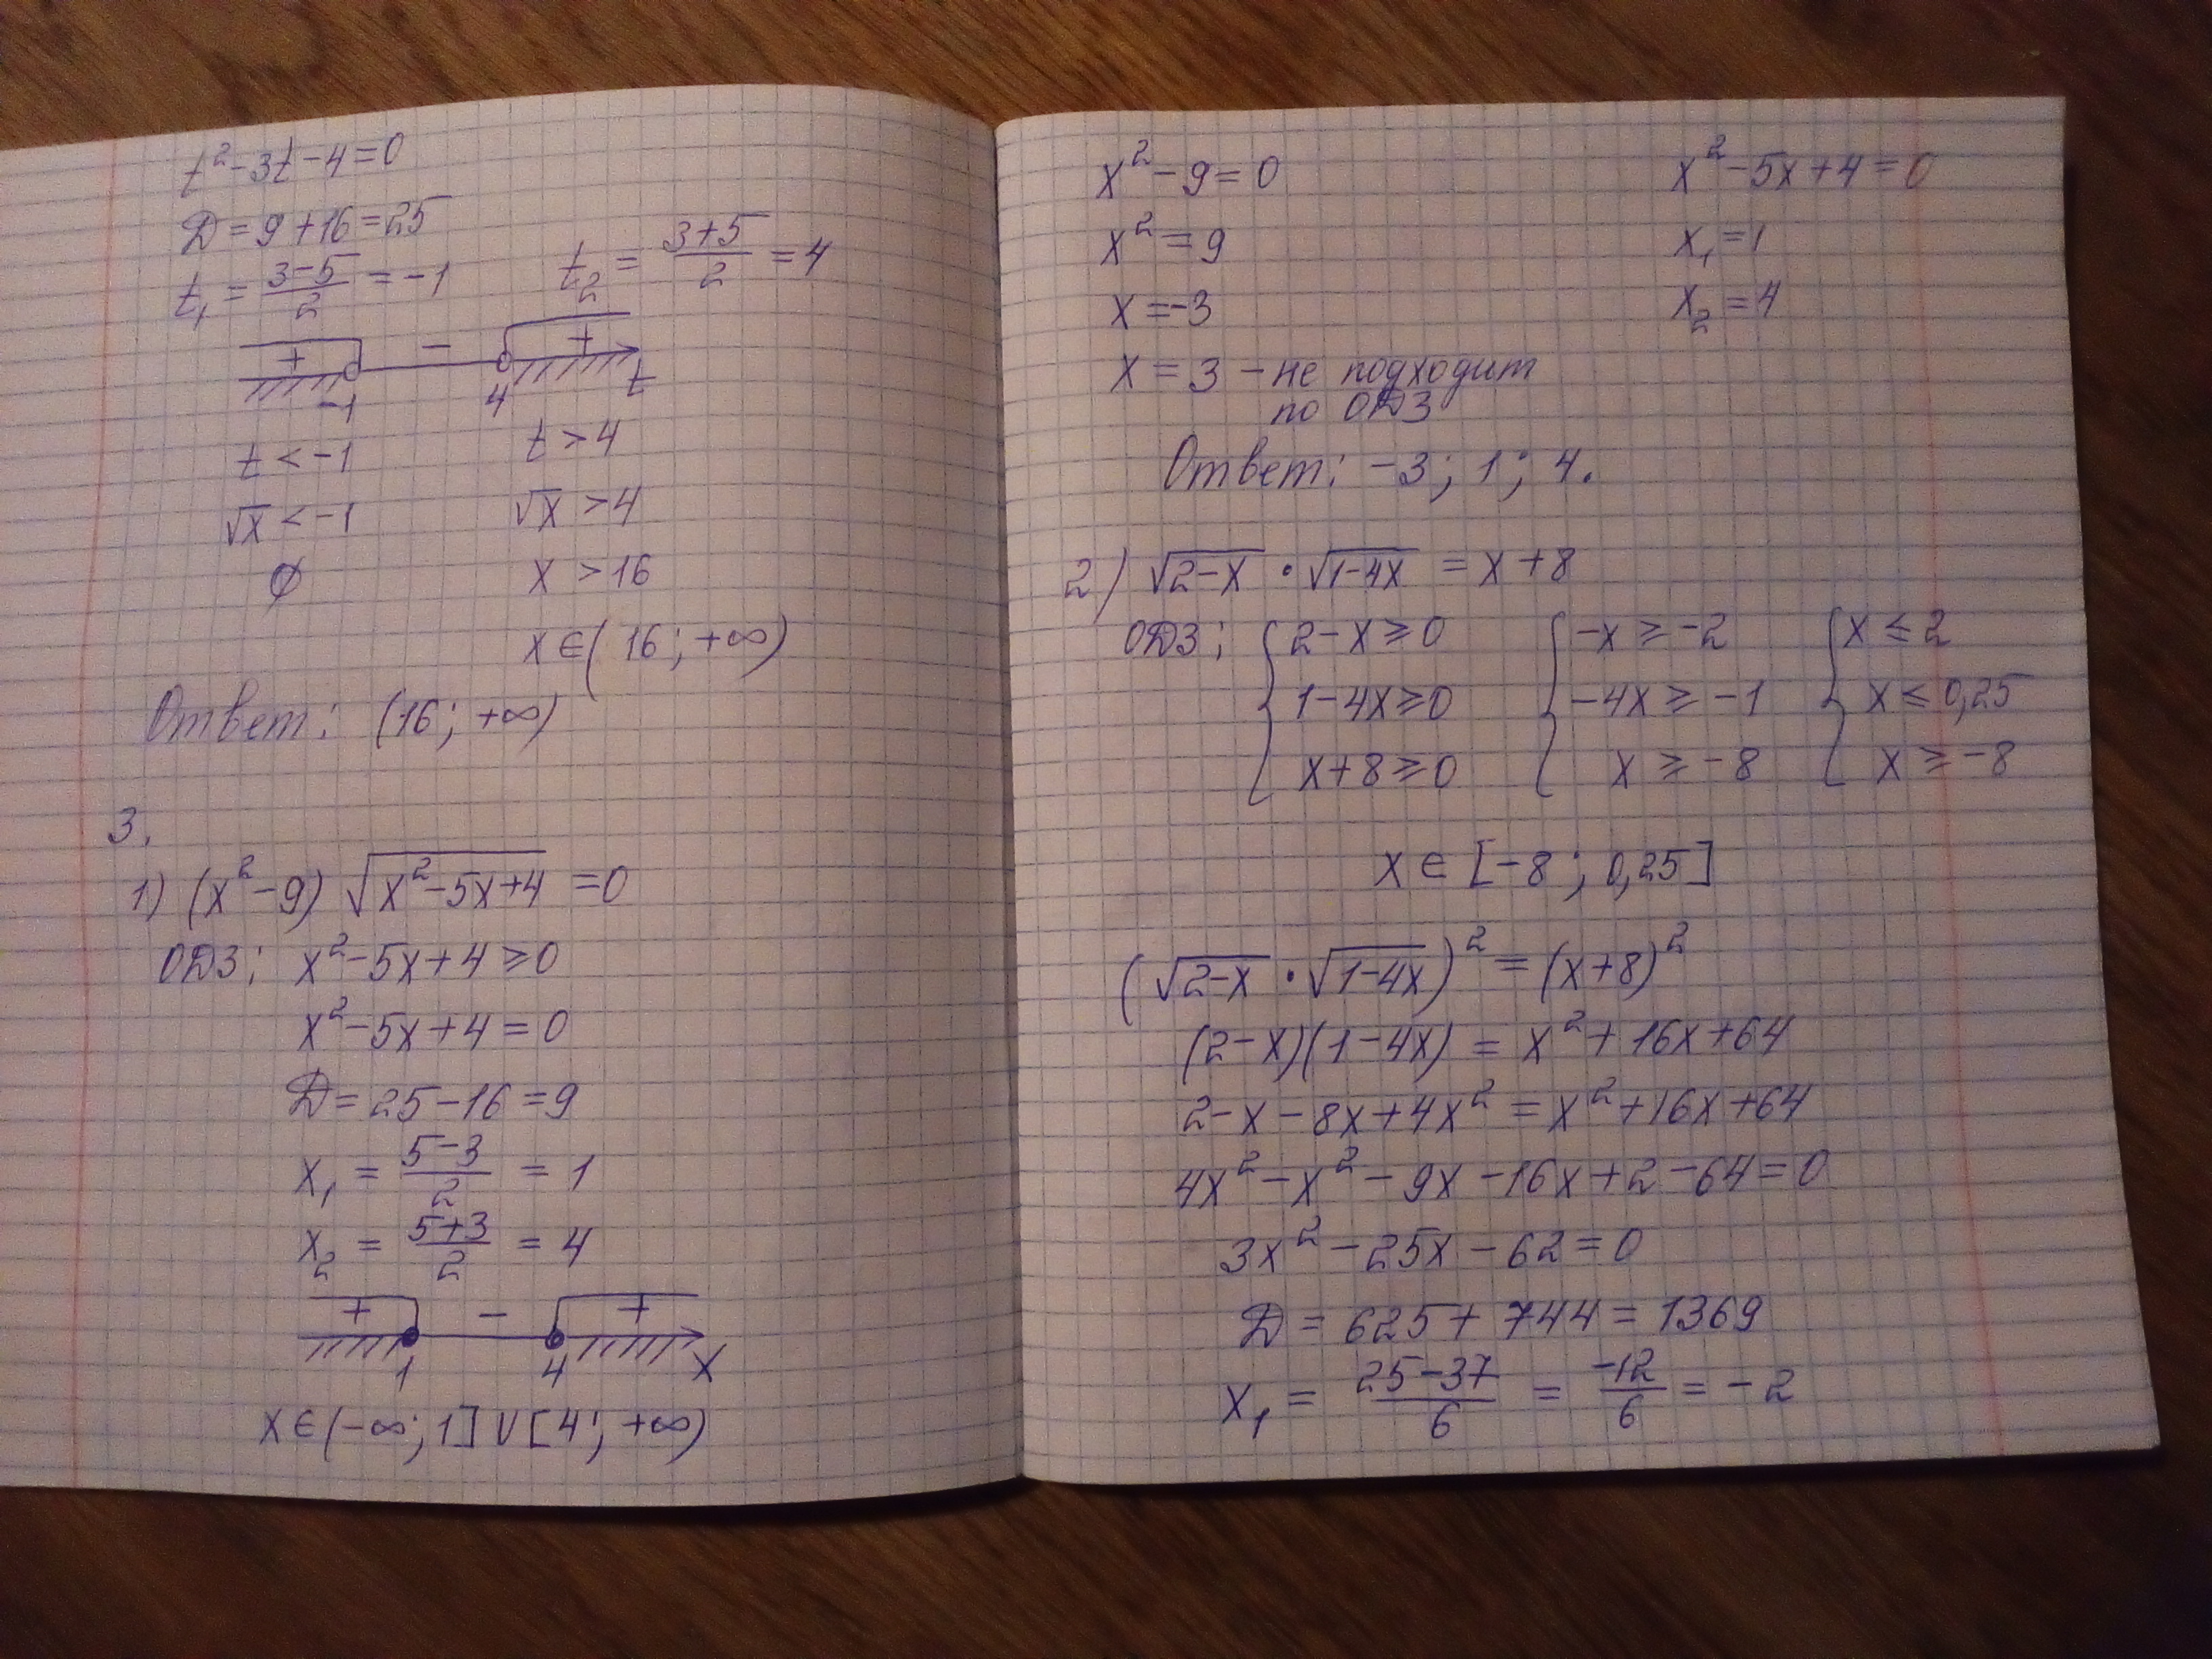 t² - 3t - 4 = 0
D = 9 + 16 = 25
t₁ = (3-5)/2 = -1    t₂ = (3+5)/2 = 4
+ − +
-1 4 t
t < -1    t > 4
√x < -1    √x > 4
∅    x > 16
x ∈ (16; +∞)
Ответ: (16; +∞)
3.
1) (x² - 9) √(x² - 5x + 4) = 0
ОДЗ: x² - 5x + 4 ≥ 0
x² - 5x + 4 = 0
D = 25 - 16 = 9
x₁ = (5-3)/2 = 1
x₂ = (5+3)/2 = 4
+ − +
1 4 x
x ∈ (-∞; 1] ∪ [4; +∞)
x² - 9 = 0    x² - 5x + 4 = 0
x² = 9    x₁ = 1
x = -3    x₂ = 4
x = 3 - не подходит
по ОДЗ
Ответ: -3; 1; 4.
2) √(2-x) · √(1-4x) = x + 8
ОДЗ: { 2 - x ≥ 0    { -x ≥ -2    { x ≤ 2
1 - 4x ≥ 0    -4x ≥ -1    x ≤ 0,25
x + 8 ≥ 0    x ≥ -8    x ≥ -8
x ∈ [-8; 0,25]
(√(2-x) · √(1-4x))² = (x+8)²
(2-x)(1-4x) = x² + 16x + 64
2 - x - 8x + 4x² = x² + 16x + 64
4x² - x² - 9x - 16x + 2 - 64 = 0
3x² - 25x - 62 = 0
D = 625 + 744 = 1369
x₁ = (25-37)/6 = -12/6 = -2